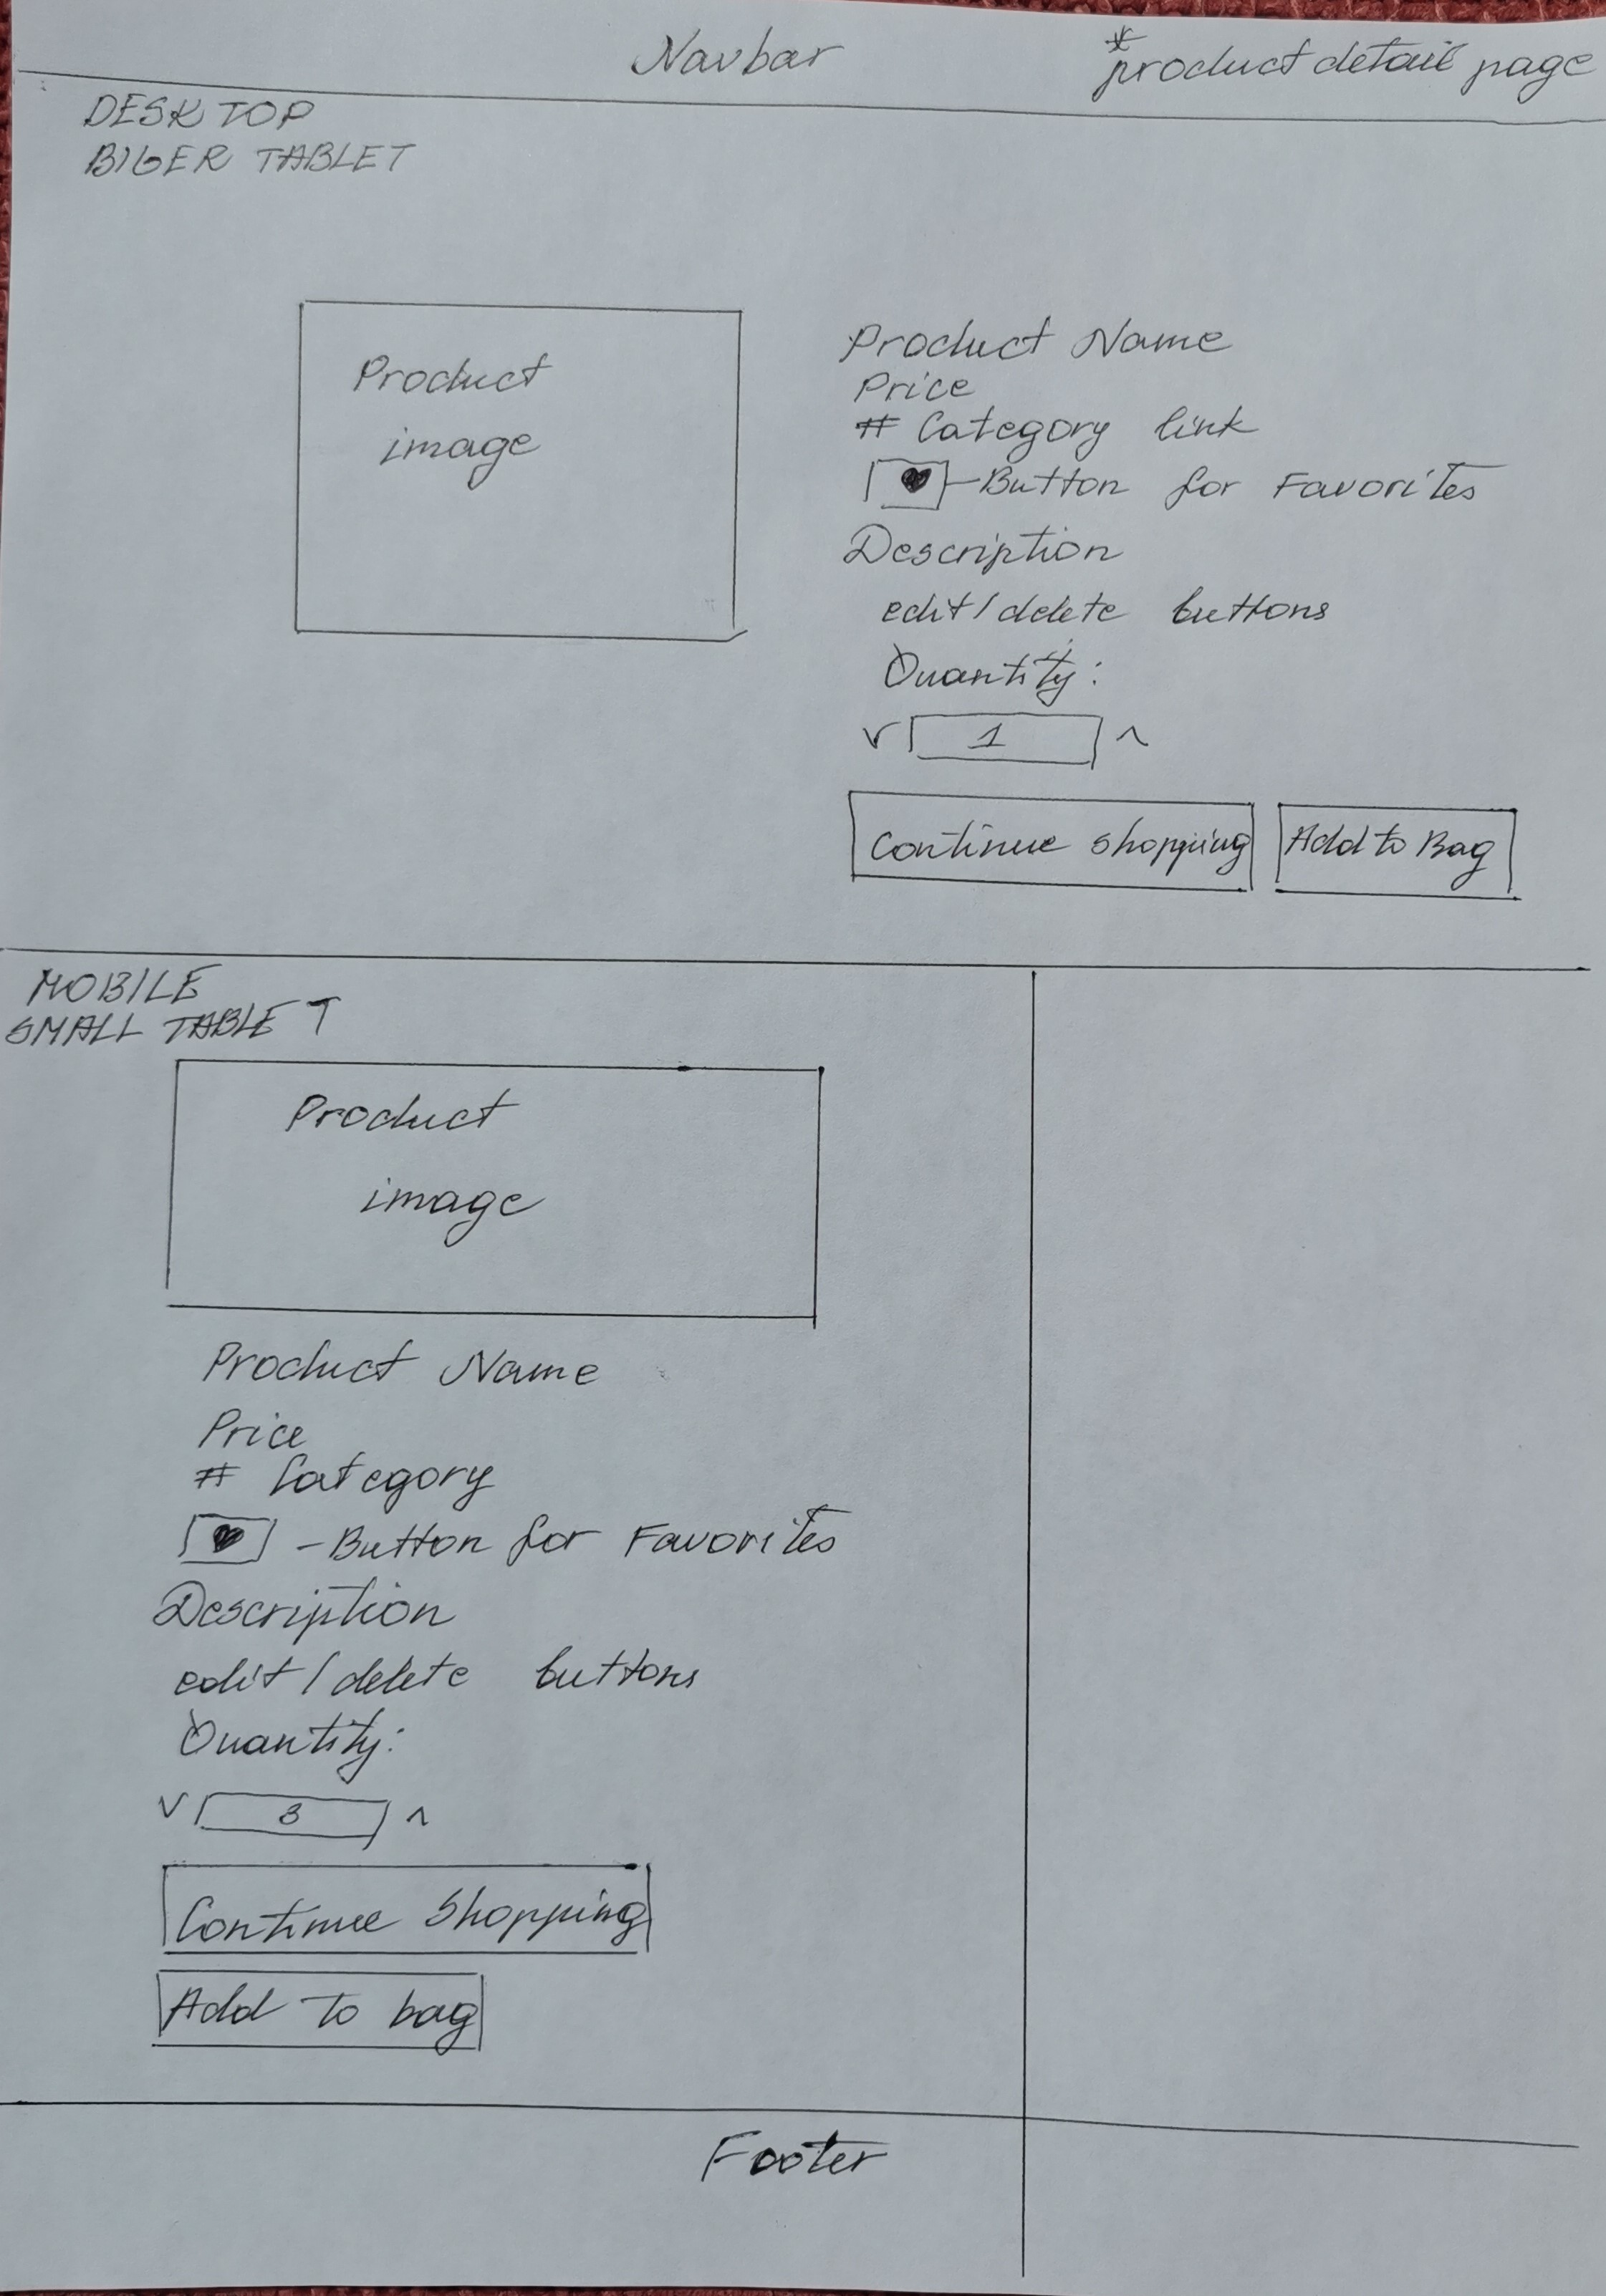 Navbar
*product detail page
DESKTOP
BIGER TABLET
Product
image
Product Name
Price
# Category link
♥ - Button for Favorites
Description
edit/delete buttons
Quantity:
v 1 ^
Continue shopping
Add to Bag
MOBILE
SMALL TABLET
Product
image
Product Name
Price
# Category
♥ - Button for Favorites
Description
edit/delete buttons
Quantity:
v 3 ^
Continue Shopping
Add to bag
Footer